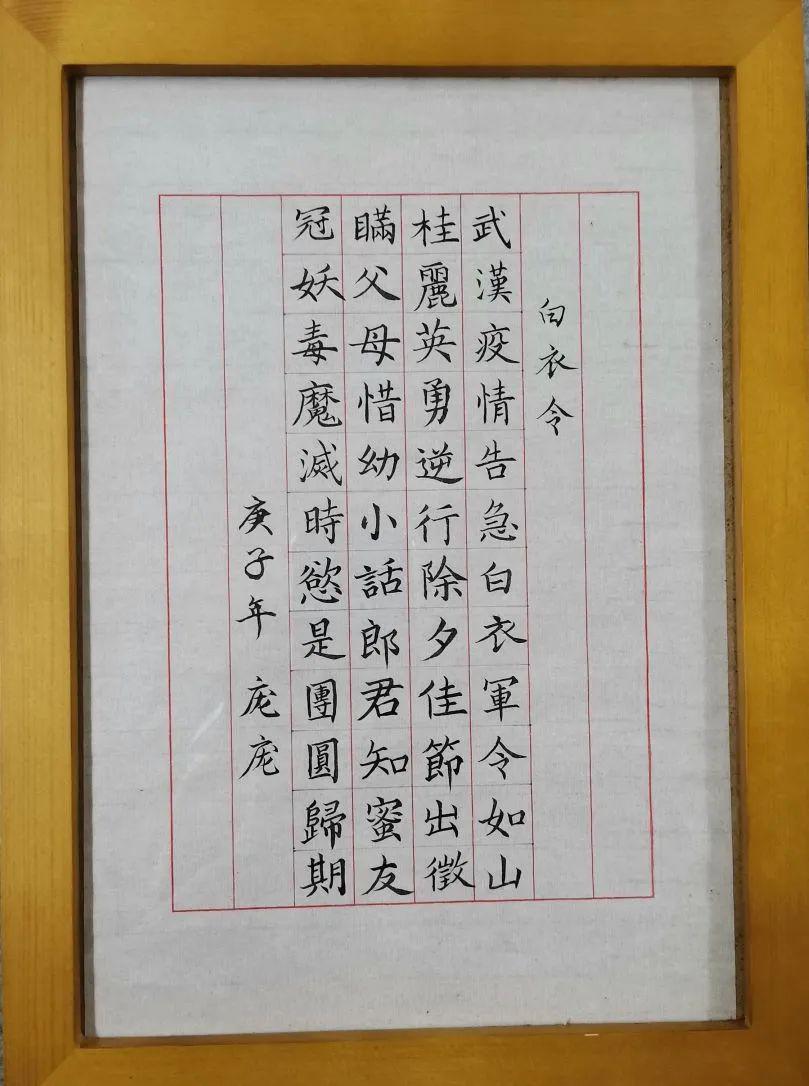 白衣令
武漢疫情告急白衣軍令如山
桂麗英勇逆行除夕佳節出徵
瞞父母惜幼小話郎君知蜜友
冠妖毒魔滅時慾是團圓歸期
庚子年 庞庞